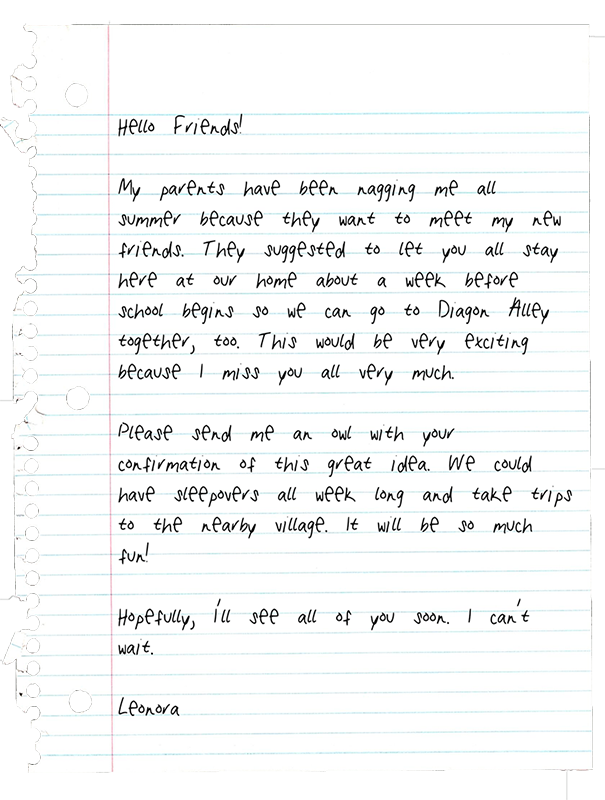 Hello Friends!
My parents have been nagging me all
summer because they want to meet my new
friends. They suggested to let you all stay
here at our home about a week before
school begins so we can go to Diagon Alley
together, too. This would be very exciting
because I miss you all very much.
Please send me an owl with your
confirmation of this great idea. We could
have sleepovers all week long and take trips
to the nearby village. It will be so much
fun!
Hopefully, i'll see all of you soon. I can't
wait.
Leonora